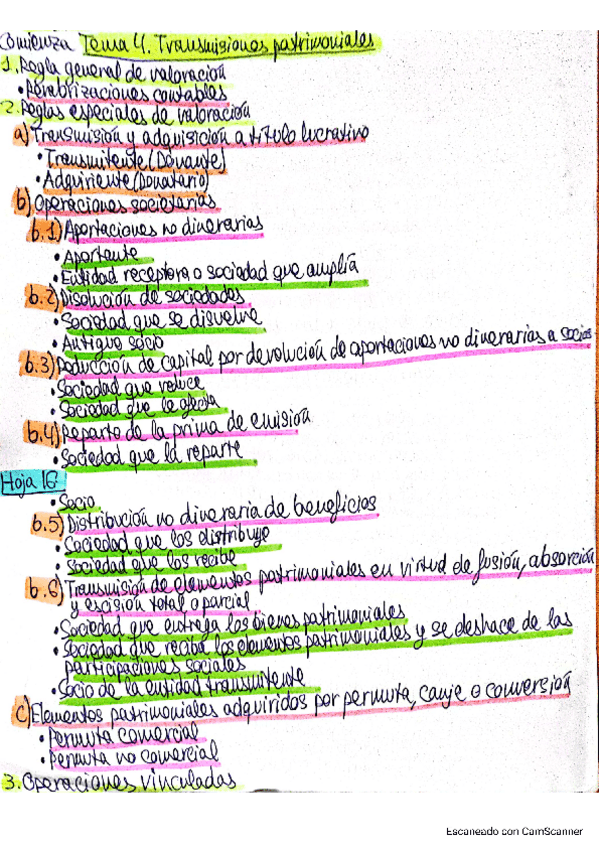 Comienza Tema 4. Transmisiones patrimoniales
1. Regla general de valoración
• Revalorizaciones contables
2. Reglas especiales de valoración
a) Transmisión y adquisición a título lucrativo
• Transmitente (Donante)
• Adquiriente (Donatario)
b) Operaciones societarias
b.1) Aportaciones no dinerarias
• Aportante
• Entidad receptora o sociedad que amplía
b.2) Disolución de sociedades
• Sociedad que se disuelve
• Antiguo socio
b.3) Reducción de capital por devolución de aportaciones no dinerarias a socios
• Sociedad que reduce
• Sociedad que la afecta
b.4) Reparto de la prima de emisión
• Sociedad que la reparte
Hoja 16
• Socio
b.5) Distribución no dineraria de beneficios
• Sociedad que los distribuye
• Sociedad que los recibe
b.6) Transmisión de elementos patrimoniales en virtud de fusión, absorción
y escisión total o parcial
• Sociedad que entrega los bienes patrimoniales
• Sociedad que recibe los elementos patrimoniales y se deshace de las
participaciones sociales
• Socio de la entidad transmitente
c) Elementos patrimoniales adquiridos por permuta, canje o conversión
• Permuta comercial
• Permuta no comercial
3. Operaciones vinculadas
Escaneado con CamScanner